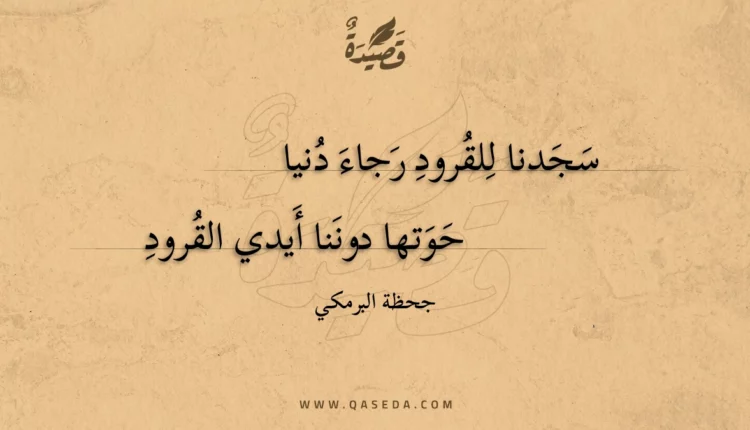 قَصِيدَةٌ
سَجَدنا لِلقُرودِ رَجاءَ دُنيا
حَوَتها دونَنا أَيدي القُرودِ
جحظة البرمكي
WWW.QASEDA.COM